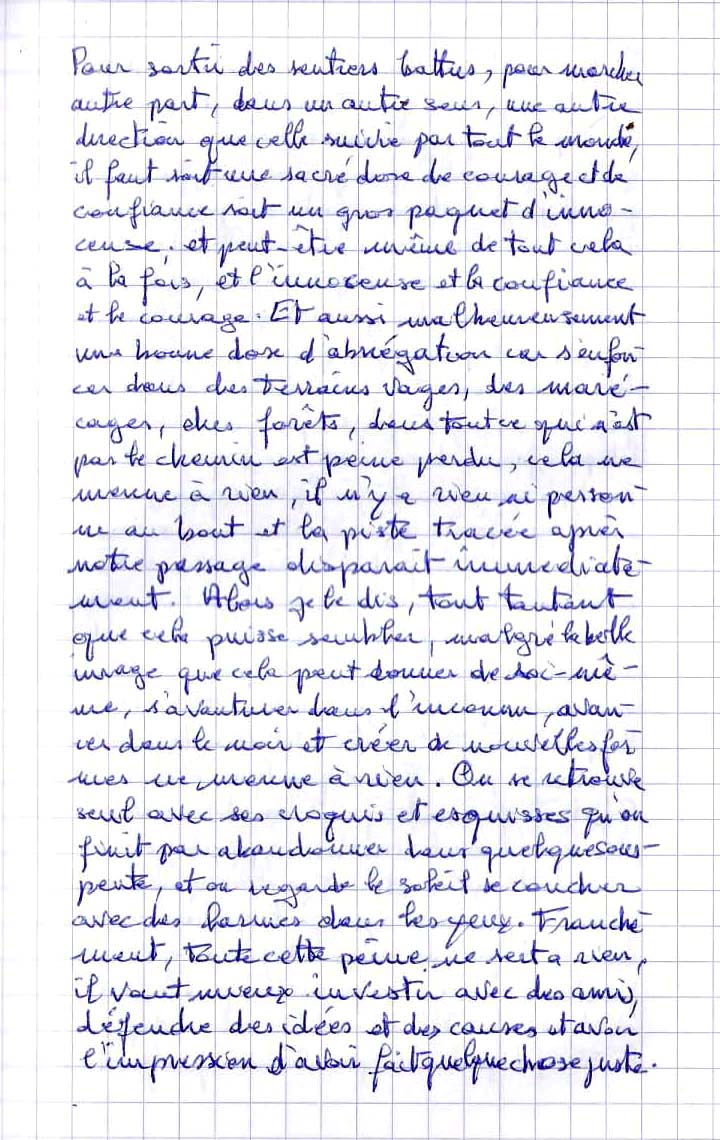 Pour sortir des sentiers battus, pour marcher
autre part, dans un autre sens, une autre
direction que celle suivie par tout le monde,
il faut soit une sacré dose de courage et de
confiance soit un gros paquet d'inno-
cense, et peut-être même de tout cela
à la fois, et l'innocense et la confiance
et le courage. Et aussi malheureusement
une bonne dose d'abnégation car s'enfon-
cer dans des terrains vages, des maré-
cages, des forêts, dans tout ce qui n'est
pas le chemin est peine perdu, cela ne
menne à rien, il n'y a rien ni person-
ne au bout et la piste tracée après
notre passage disparait immediate-
ment. Alors je le dis, tout tentant
que cela puisse sembler, malgré la belle
image que cela peut donner de soi-mê-
me, s'avanturer dans l'inconnu, avan-
cer dans le noir et créer de nouvelles for
mes ne menne à rien. On se retrouve
seul avec ses croquis et esquisses qu'on
finit par abandonner dans quelque sous-
pente, et on regarde le soleil se coucher
avec des larmes dans les yeux. Franche-
ment, toute cette peine ne sert a rien,
il vaut mieux investir avec des amis,
défendre des idées et des causes et avoir
l'impression d'avoir fait quelque chose juste.